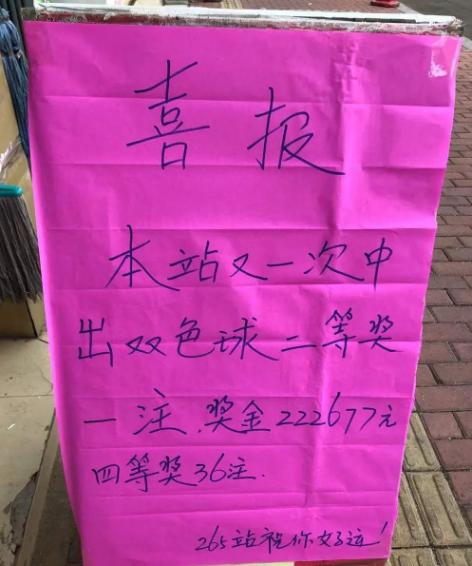 喜报
本站又一次中
出双色球二等奖
一注.奖金222677元
四等奖36注.
265站祝你好运!